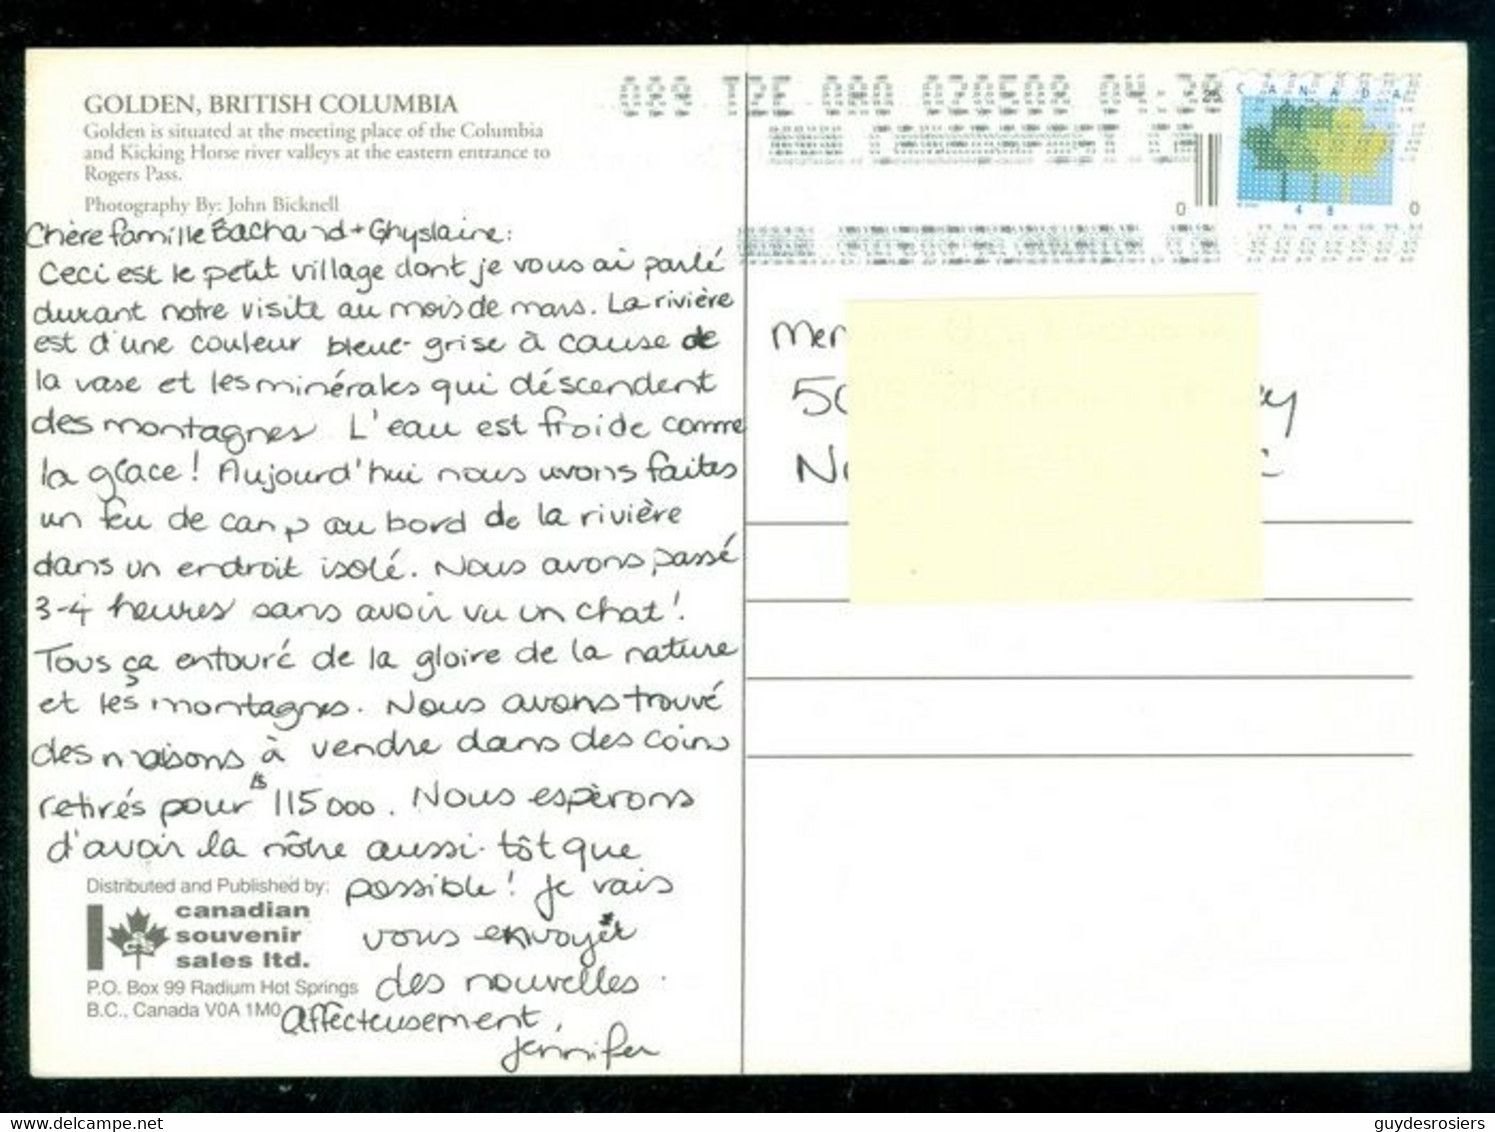 GOLDEN, BRITISH COLUMBIA
Golden is situated at the meeting place of the Columbia
and Kicking Horse river valleys at the eastern entrance to
Rogers Pass.
Photography By: John Bicknell
Chère famille Bachand + Ghyslaine:
Ceci est le petit village dont je vous ai parlé
durant notre visite au mois de mars. La rivière
est d'une couleur bleue-grise à cause de
la vase et les minérales qui déscendent
des montagnes. L'eau est froide comme
la glace! Aujourd'hui nous avons faites
un feu de camp au bord de la rivière
dans un endroit isolé. Nous avons passé
3-4 heures sans avoir vu un chat!
Tous ça entouré de la gloire de la nature
et les montagnes. Nous avons trouvé
des maisons à vendre dans des coins
retirés pour $115 000. Nous espèrons
d'avoir la nôtre aussi-tôt que
possible! Je vais
vous envoyer
des nouvelles.
Affecteusement,
Jennifer
Distributed and Published by:
canadian
souvenir
sales ltd.
P.O. Box 99 Radium Hot Springs
B.C., Canada V0A 1M0
CANADA
0 48 0
guydesrosiers